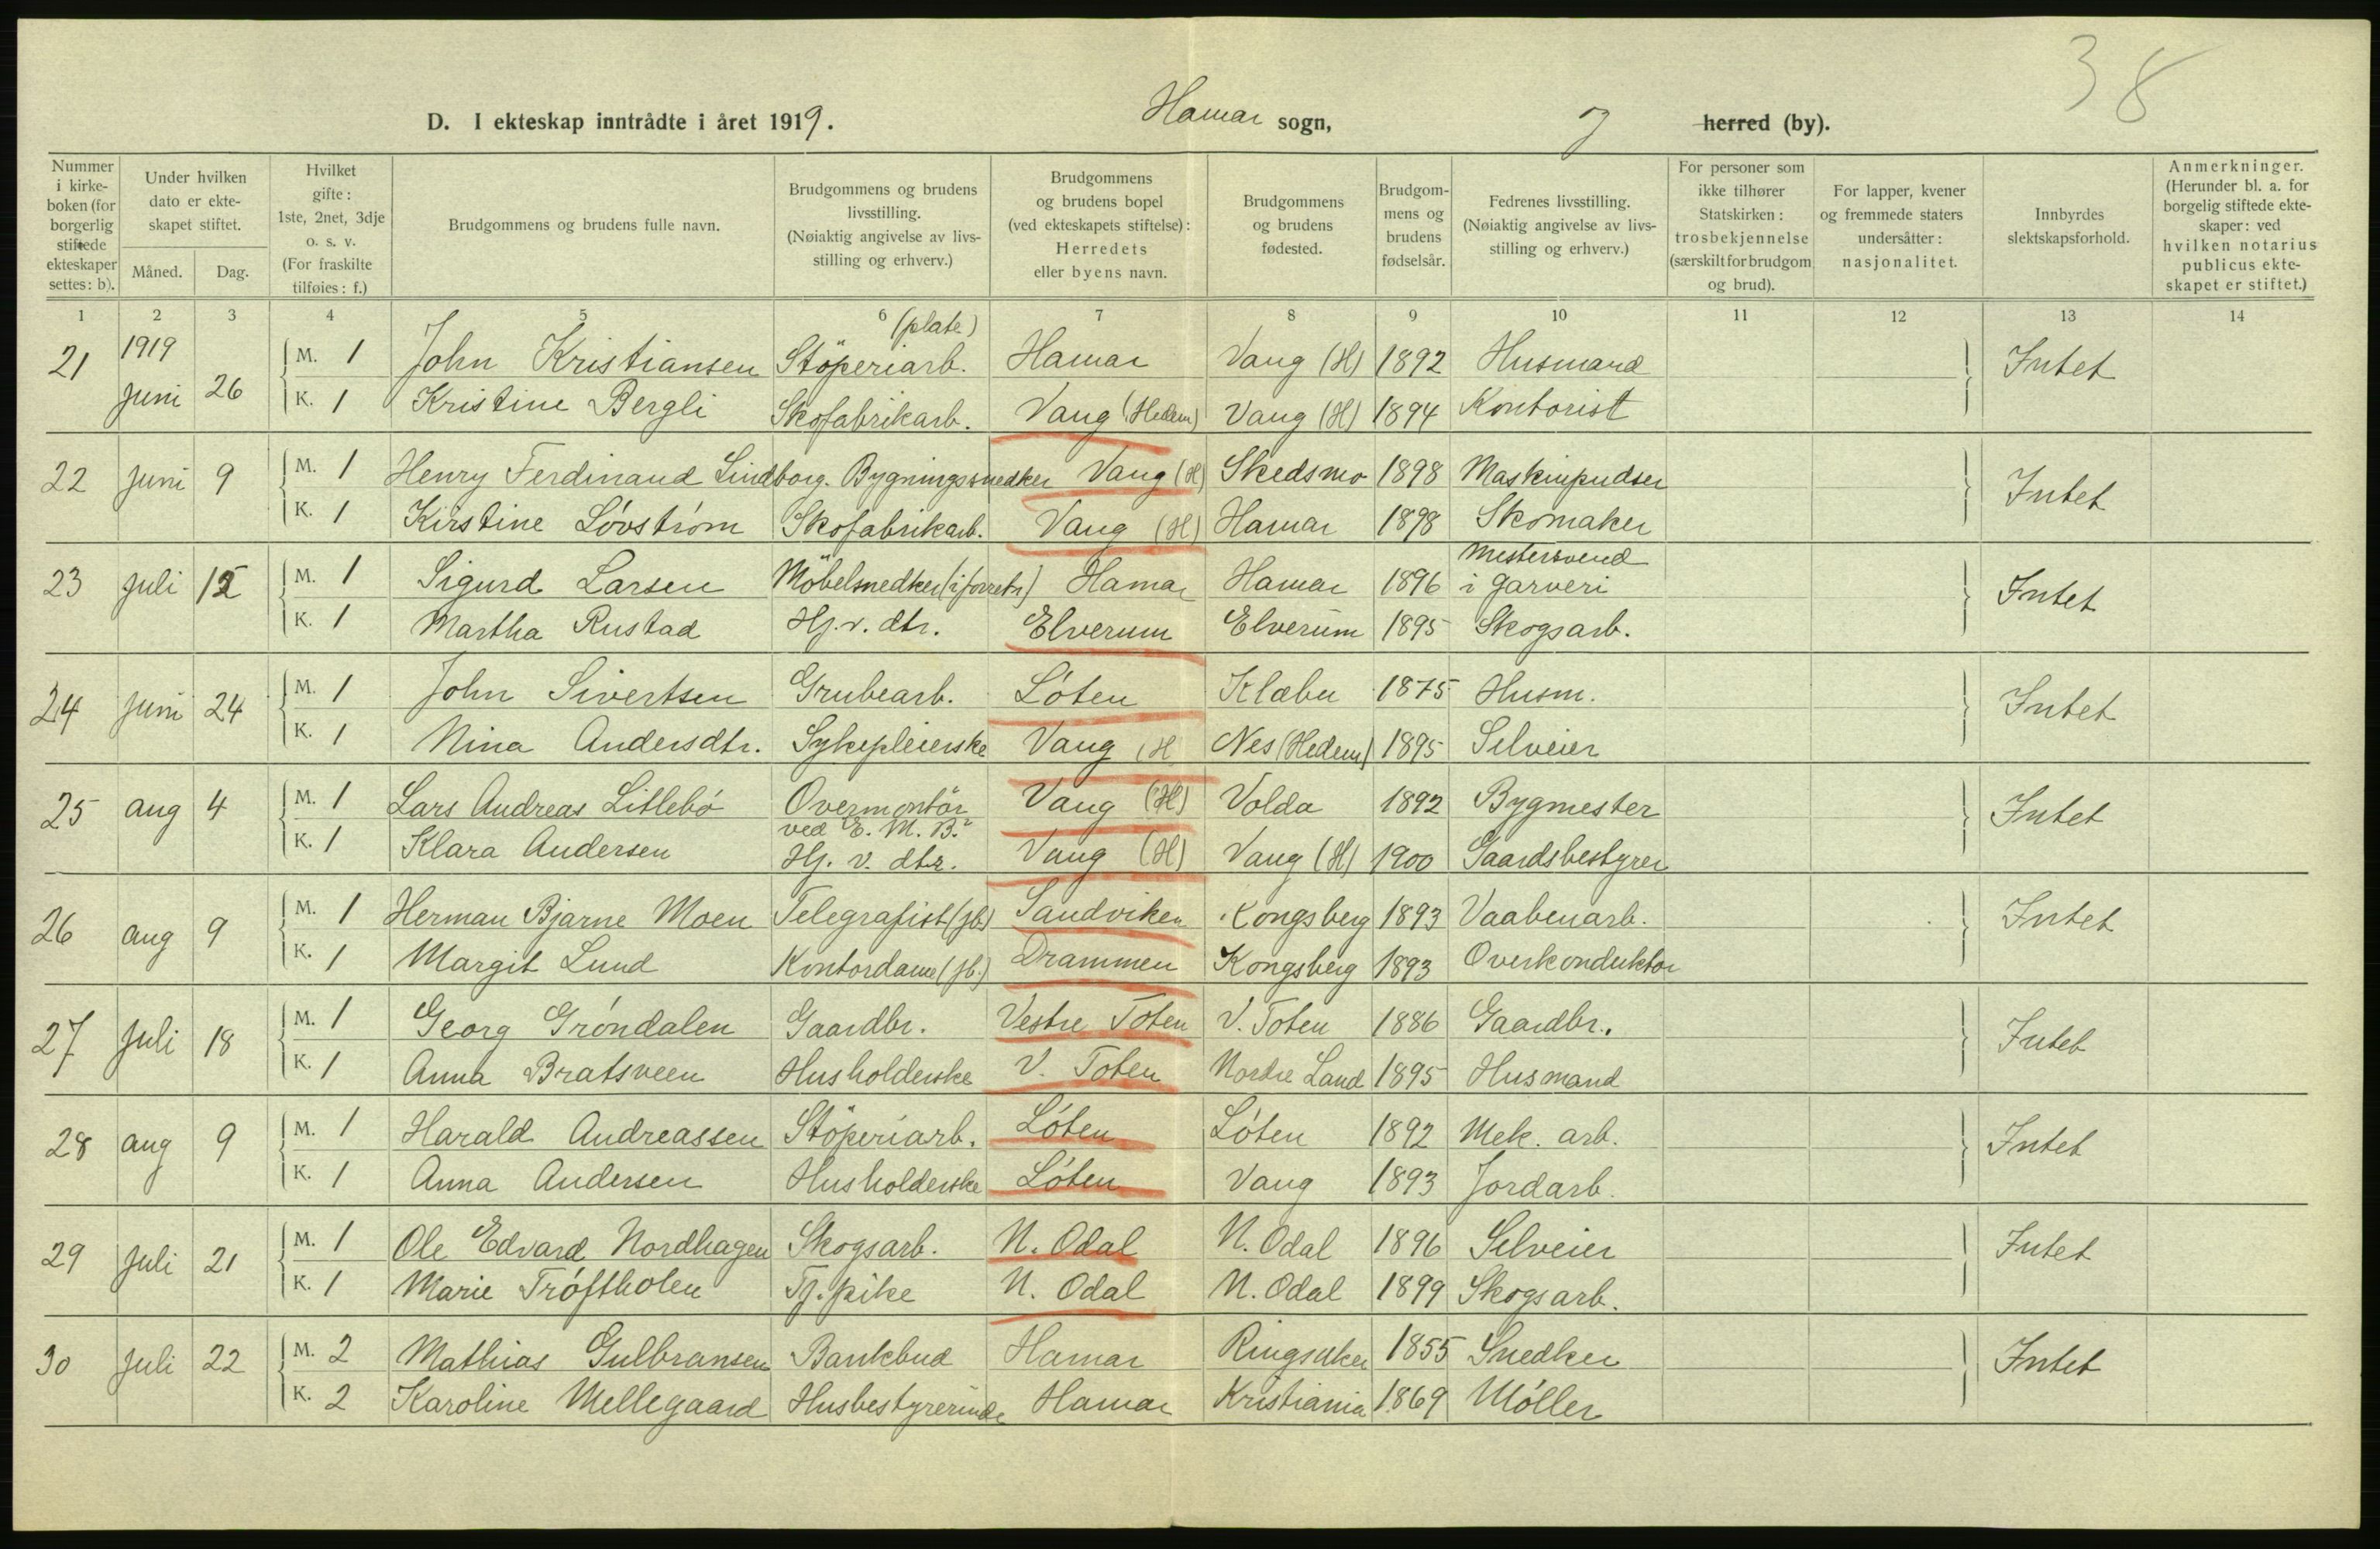 38
D. I ekteskap inntrådte i året 1919. Hamar sogn, herred (by).
Nummer i kirkeboken (for borgerlig stiftede ekteskaper settes: b).
Under hvilken dato er ekteskapet stiftet.
Måned. Dag.
Hvilket gifte: 1ste, 2net, 3dje o. s. v. (For fraskilte tilføies: f.)
Brudgommens og brudens fulle navn.
Brudgommens og brudens livsstilling. (Nøiaktig angivelse av livsstilling og erhverv.)
Brudgommens og brudens bopel (ved ekteskapets stiftelse): Herredets eller byens navn.
Brudgommens og brudens fødested.
Brudgommens og brudens fødselsår.
Fedrenes livsstilling. (Nøiaktig angivelse av livsstilling og erhverv.)
For personer som ikke tilhører Statskirken: trosbekjennelse (særskilt for brudgom og brud).
For lapper, kvener og fremmede staters undersåtter: nasjonalitet.
Innbyrdes slektskapsforhold.
Anmerkninger. (Herunder bl. a. for borgelig stiftede ekteskaper: ved hvilken notarius publicus ekteskapet er stiftet.)
1 2 3 4 5 6 7 8 9 10 11 12 13 14
21 1919 Juni 26 M. 1 John Kristiansen Støperiarb. (plate) Hamar Vang (H) 1892 Husmand Intet
K. 1 Kristine Bergli Skofabrikarb. Vang (Hedem) Vang (H) 1894 Kontorist
22 Juni 9 M. 1 Henry Ferdinand Lindborg. Bygningssnedker Vang (H) Skedsmo 1898 Maskinpudser Intet
K. 1 Kirstine Løvstrøm Skofabrikarb. Vang (H) Hamar 1898 Skomaker
23 Juli 15 M. 1 Sigurd Larsen Möbelsnedker (i forretn) Hamar Hamar 1896 Mestersvend i garveri Intet
K. 1 Martha Rustad Hj. v. dtr. Elverum Elverum 1895 Skogsarb.
24 Juni 24 M. 1 John Sivertsen Grubearb. Løten Klæbu 1875 Husm. Intet
K. 1 Nina Andersdtr. Sykepleierske Vang (H Nes (Hedem) 1895 Selveier
25 aug 4 M. 1 Lars Andreas Litlebø Overmontör ved E. M. B. Vang (H) Volda 1892 Bygmester Intet
K. 1 Klara Andersen Hj. v. dtr. Vang (H) Vang (H) 1900 Gaardsbestyrer
26 aug 9 M. 1 Herman Bjarne Moen Telegrafist (jb.) Sandviken Kongsberg 1893 Vaabenarb. Intet
K. 1 Margit Lund Kontordame (jb.) Drammen Kongsberg 1893 Overkonduktør
27 Juli 18 M. 1 Georg Grøndalen Gaardbr. Vestre Toten V. Toten 1886 Gaardbr. Intet
K. 1 Anna Bratsveen Husholderske V. Toten Nordre Land 1895 Husmand
28 aug 9 M. 1 Harald Andreassen Støperiarb. Løten Løten 1892 Mek. arb. Intet
K. 1 Anna Andersen Husholderske Løten Vang 1893 Jordarb.
29 Juli 21 M. 1 Ole Edvard Nordhagen Skogsarb. N. Odal N. Odal 1896 Selveier Intet
K. 1 Marie Trøftholen Tj. pike N. Odal N. Odal 1899 Skogsarb.
30 Juli 22 M. 2 Mathias Gulbransen Bankbud Hamar Ringsaker 1855 Snedker Intet
K. 2 Karoline Mellegaard Husbestyrerinde Hamar Kristiania 1869 Møller